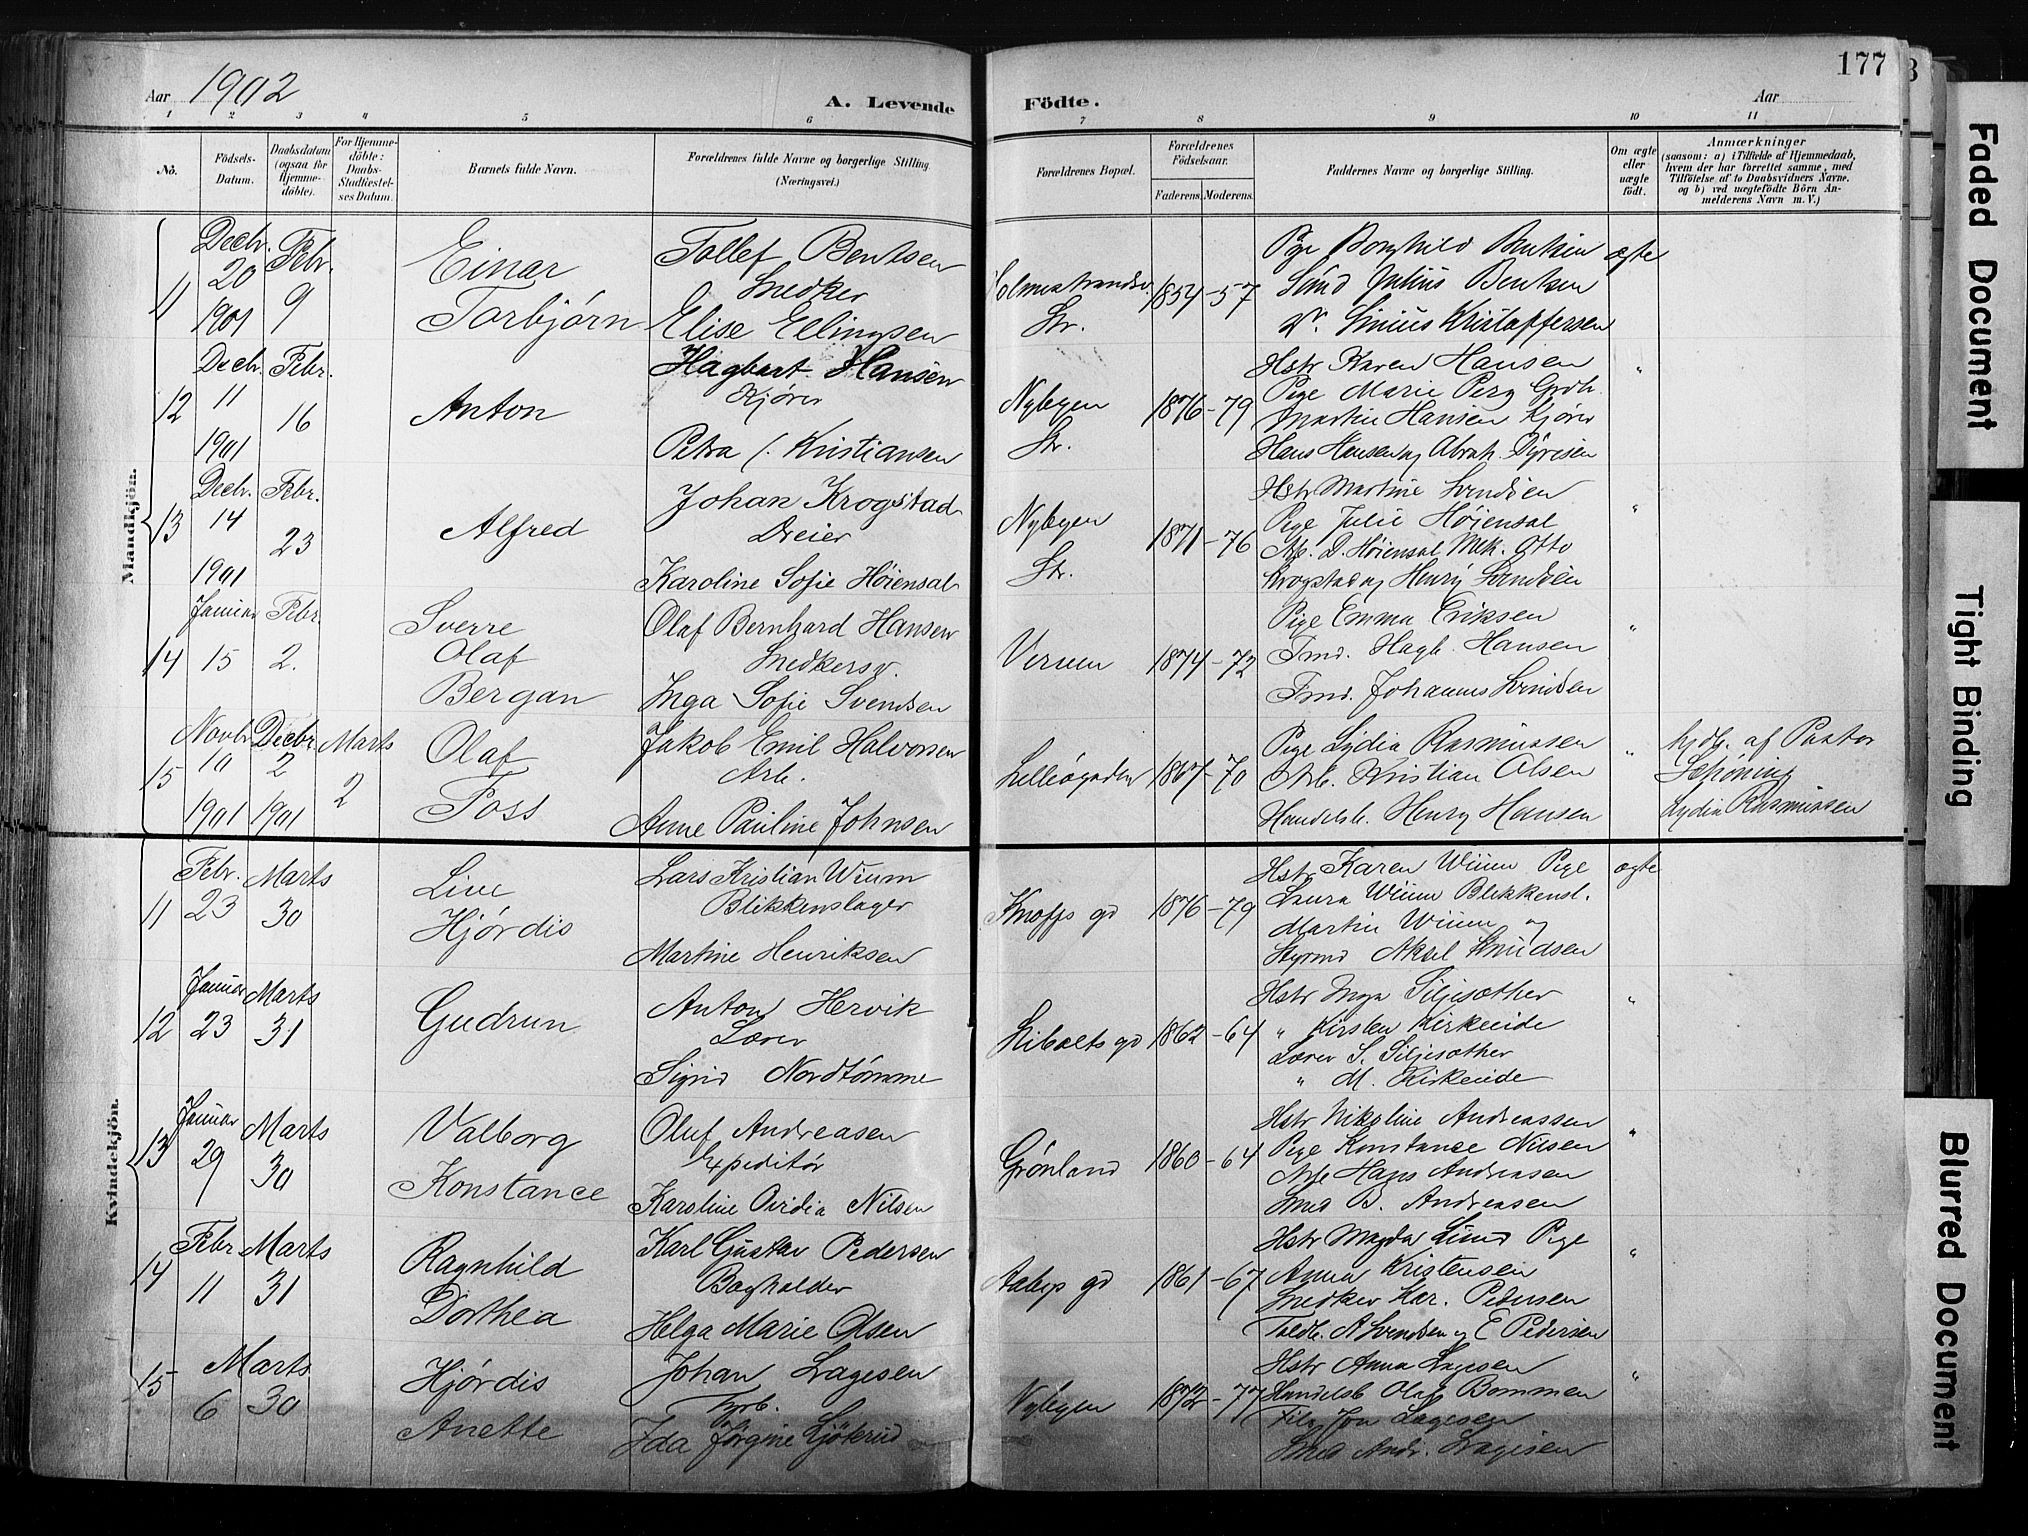 Aar 1902
A. Levende Födte.
Aar
177
1 2 3 4 5 6 7 8 9 10 11
No.
Födsels-Datum.
Daabsdatum (ogsaa for Hjemmedöbte).
For Hjemmedöbte: Daabs-Stadfæstelses Datum.
Barnets fulde Navn.
Forældrenes fulde Navne og borgerlige Stilling. (Næringsvei.)
Forældrenes Bopæl.
Forældrenes Födselsaar.
Faderens. Moderens.
Faddernes Navne og borgerlige Stilling.
Om ægte eller uægte födt.
Anmærkninger
(saasom: a) i Tilfælde af Hjemmedaab, hvem der har forrettet samme, med Tilföielse af to Daabsvidners Navne. og b) ved uægtefödte Börn Anmelderens Navn m. V.)
Mandkjön.
11 Decbr. 20 1901 Febr. 9
Einar Torbjørn
Tollef Bentsen
Snedker
Elise Ellingsen
Holmestrandsv. Str.
1854-57
Pige Borghild Bentsen
Smed Julius Bentsen
V. Sinius Kristoffersen
ægte
12 Decbr. 11 1901 Febr. 16
Anton
Hagbart Hansen
Kjører
Petra C. Kristiansen
Nybyen Str.
1876-79
Hstr Karen Hansen
Pige Marie Perg Grdb.
Martin Hansen Kjører
Hans Hansen og Abrah. Dyresen
"
13 Decbr. 14 1901 Febr. 23
Alfred
Johan Krogstad
Dreier
Karoline Sofie Høiensal
Nybyen Str.
1871-76
Hstr Martine Svendsen
Pige Julie Høiensal
Arb. D. Høiensal Mek. Otto
Krogstad og Henry Svendsen
"
14 Januar 15 Febr. 2.
Sverre Olaf Bergan
Olaf Bernhard Hansen
Snedkersv.
Inga Sofie Svendsen
Verven
1874-72
Pige Emma Eriksen
Tmd. Hagb. Hansen
Tmd. Johannes Svendsen
"
15 Novbr. 10 1901 Decbr. 2 1901 Marts 2
Olaf Foss
Jakob Emil Halvorsen
Arb.
Anne Pauline Johnsen
Lilleøgaden
1867-70
Pige Lydia Rasmussen
Arb. Kristian Olsen
Handelsb. Henry Hansen
"
hjdb. af Pastor
Schøning
Lydia Rasmussen
Kvindekjön.
11 Febr. 23 Marts 30
Live Hjørdis
Lars Kristian Wium
Blikkenslager
Martine Henriksen
Knoffs gd
1876-79
Hstr Karen Wium Pige
Laura Wium Blikkensl.
Martin Wium og
Styrmd Aksel Knudsen
ægte
12 Januar 23 Marts 31
Gudrun
Anton Hervik
Lærer
Sigrid Nordtømme
Kiboltsgd
1862-64
Hstr Inga Siljesæther
" Kirsten Kirkeeide
Lærer S. Siljesæther
" M. Kirkeeide
"
13 Januar 29 Marts 30
Valborg Konstance
Oluf Andreasen
Expeditør
Karoline Ovidia Nilsen
Grønland
1860-64
Hstr Nikoline Andreassen
Pige Konstance Nilsen
Arb Hans Andreasen
Smed B. Andreasen
"
14 Febr 11 Marts 31
Ragnhild Dorthea
Karl Gustav Pedersen
Bogholder
Helga Marie Olsen
Aabys gd
1861-67
Hstr Magda Lund Pige
Anna Kristensen
Snedker Kar. Pedersen
Toldb. A Svendsen og E Pedersen
"
15 Marts 6 30
Hjørdis Anette
Johan Lagesen
Typb.
Ida Jørgine Gjøterud
Nybyen
1872-77
Hstr Anna Lagesen
Handelsb Olaf Bommen
Jon Lagesen
Smed Andr. Lagesen
"
Faded Document
Tight Binding
Blurred Document